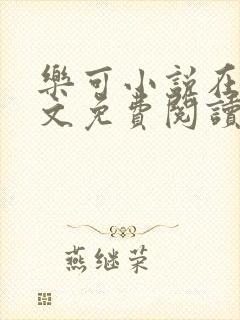 樂可小説在
文免費閱讀
燕继荣